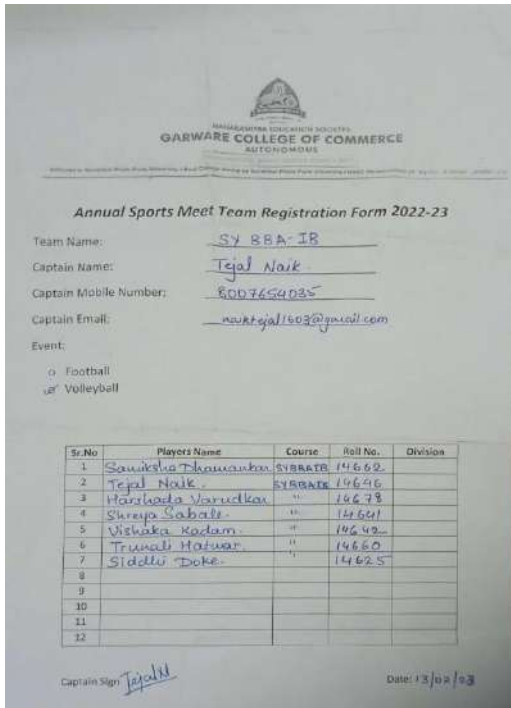 MAHARASHTRA EDUCATION SOCIETY'S
GARWARE COLLEGE OF COMMERCE
AUTONOMOUS
Annual Sports Meet Team Registration Form 2022-23
Team Name: SY BBA-IB
Captain Name: Tejal Naik
Captain Mobile Number: 8007654035
Captain Email: naiktejal1603@gmail.com
Event:
Football
Volleyball
Sr.No Players Name Course Roll No. Division
1 Samiksha Dhamankar SYBBAIB 14662
2 Tejal Naik. SYBBAIB 14646
3 Harshada Varudkar " 14678
4 Shreya Sabale. " 14641
5 Vishaka Kadam. " 14642
6 Trunali Hatwar. " 14660
7 Siddhi Doke. " 14625
8
9
10
11
12
Captain Sign TejalN Date: 13/02/23